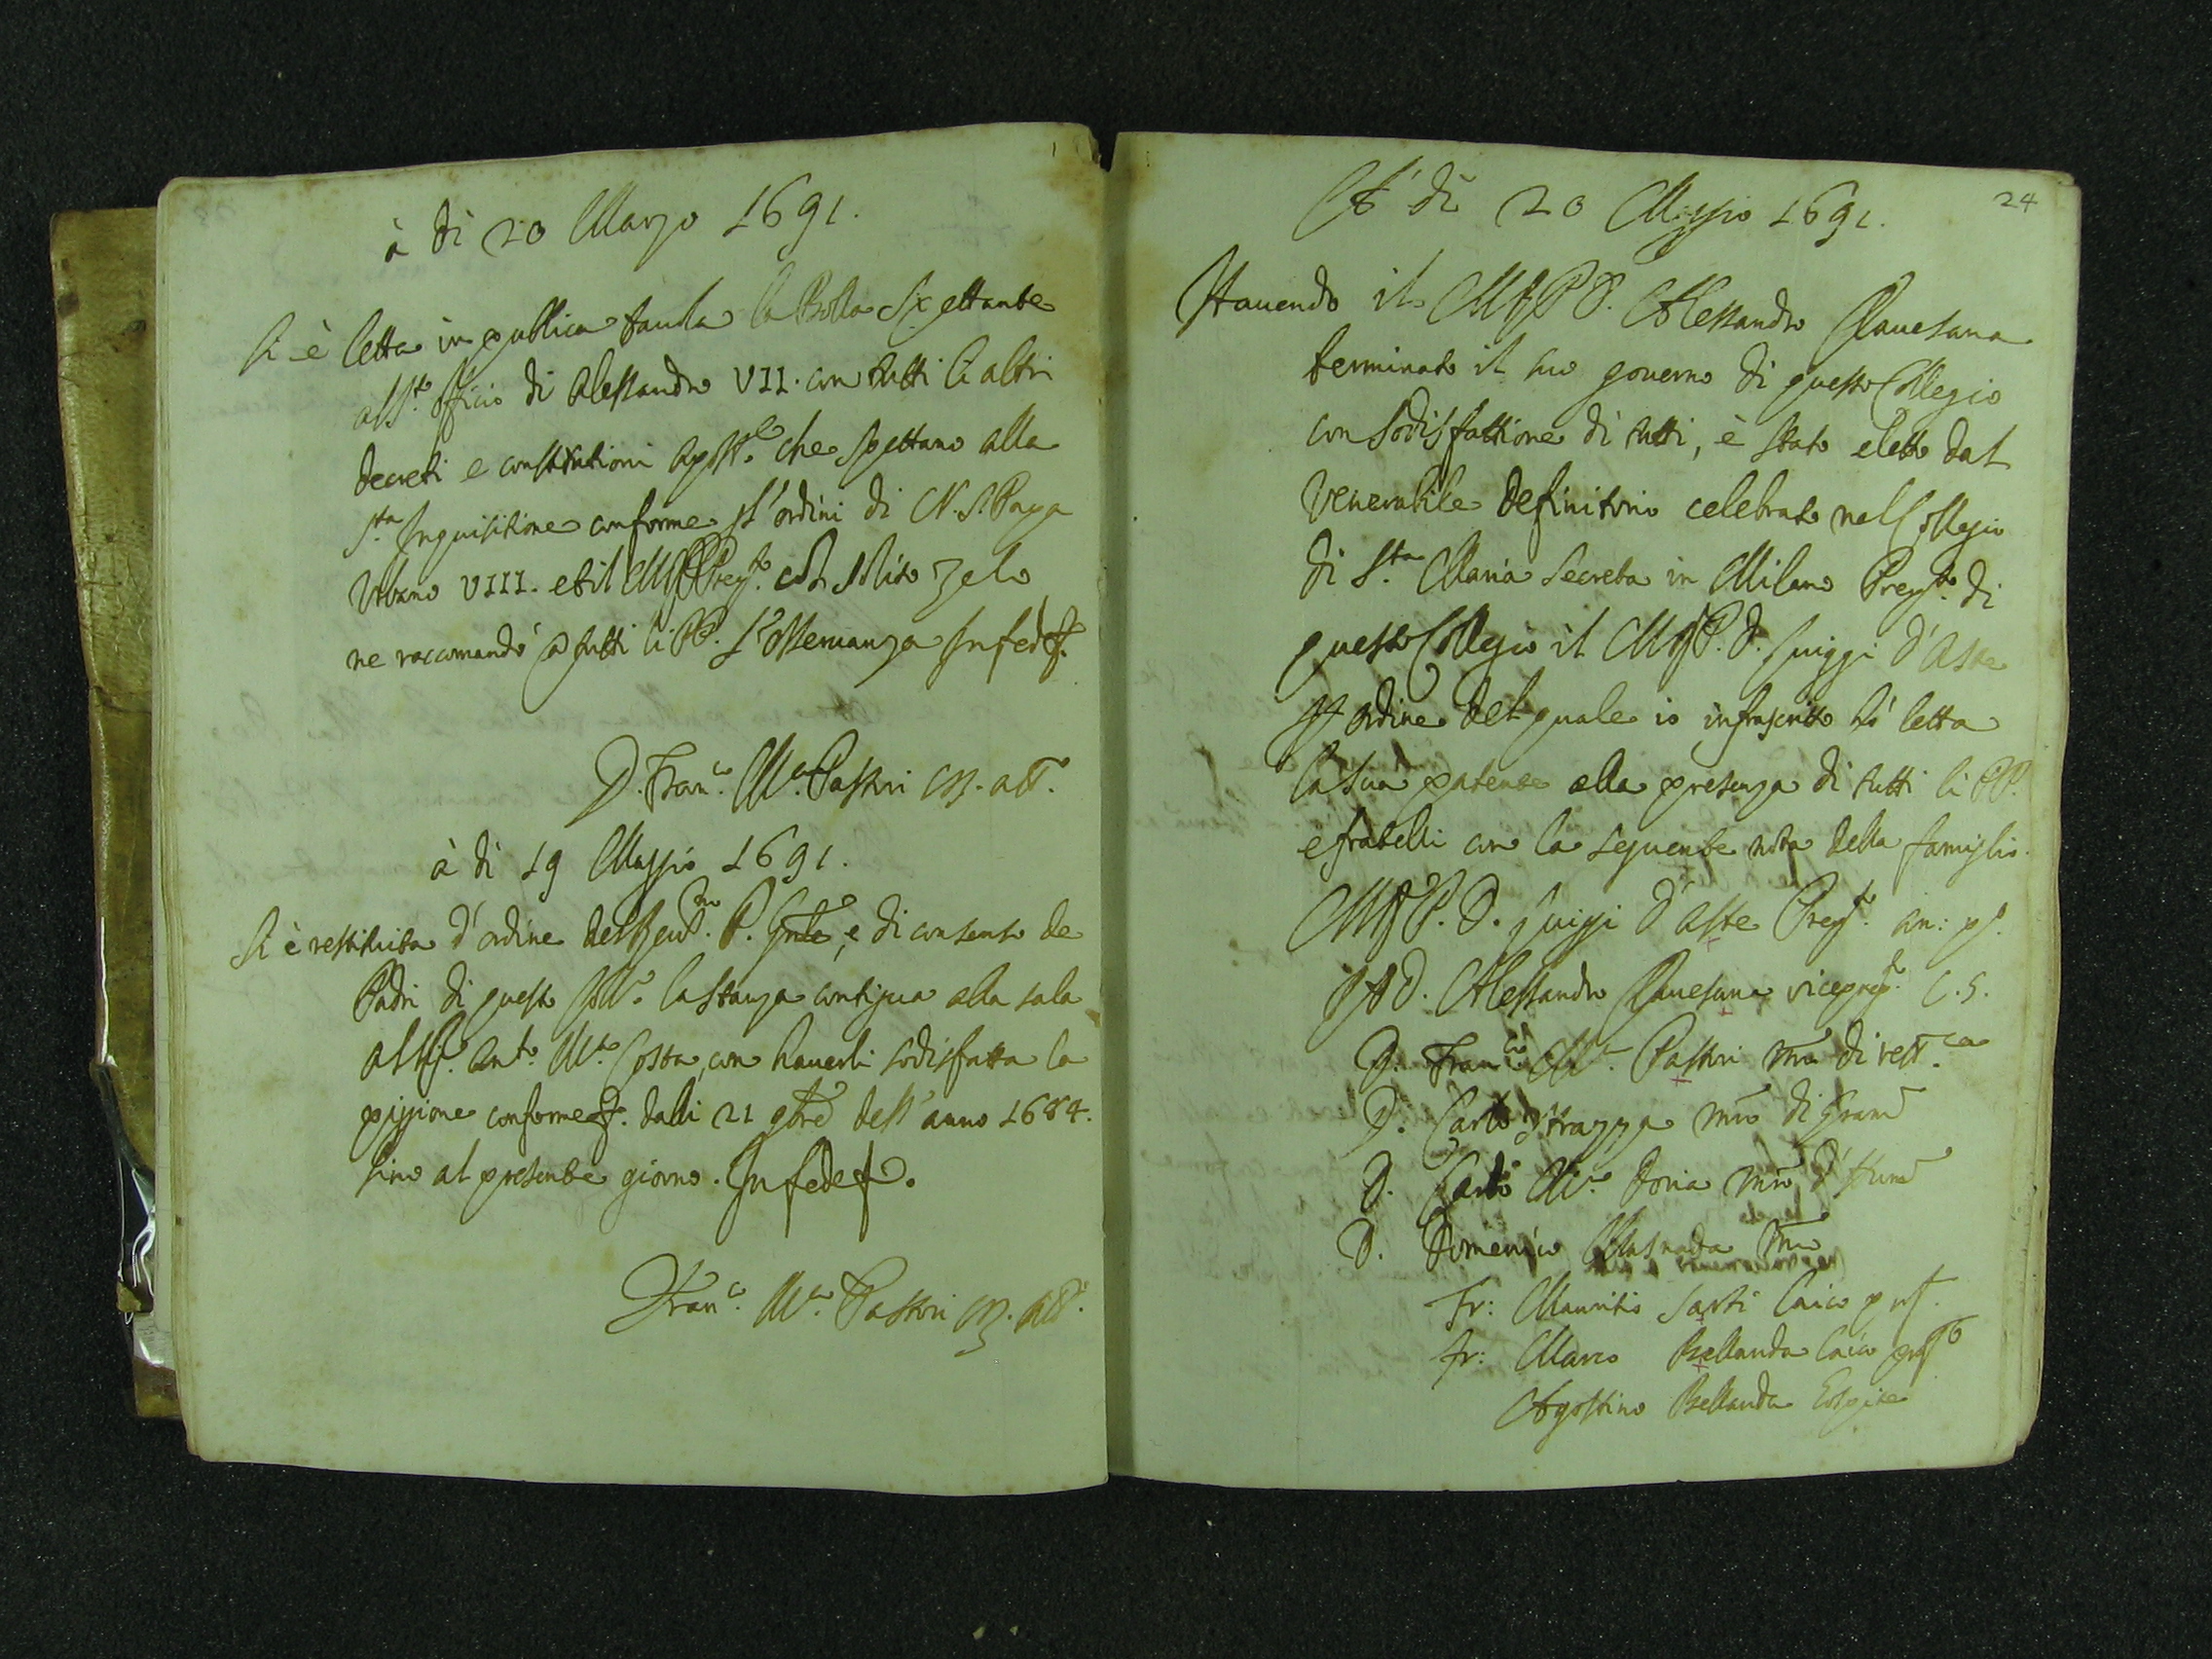 à dì 20 Marzo 1691.
Si è letta in publica tauola la Bolla spettante
al S.to officio di Alessandro VII. con tutti li altri
decreti e constitutioni che spettano alla
S.ta Inquisitione conforme l'ordini di N. S. Papa
Vrbano VIII. et il M R P Prep.to col solito zelo
ne raccomandò a tutti li PP. l'osseruanza In fede &.
D. Fran.co M.a Pastori C.R. att.o
à dì 19 Maggio 1691.
Si è restituita d'ordine del Reu.mo P. Gnle, e di consenso de
Padri di questo la stanza contigua alla sala
al Sig. Ant.o M.a Costa, con hauerli sodisfatta la
pigione conforme &. dalli 21 9bre dell'anno 1684.
sino al presente giorno. In fede &.
Fran.co M.a Pastori C.R. Att.o
24
A' dì 20 Maggio 1691.
Hauendo il M R P D. Alessandro Rauesana
terminato il suo gouerno di questo Collegio
con sodisfattione di tutti, è stato eletto dal
Venerabile Definitorio celebrato nel Collegio
di S.ta Maria Secreta in Milano Prep.to di
questo Collegio il M R P. D. Luiggi d'Aste
p ordine del quale io infrascritto hò letta
la sua patente alla presenza di tutti li PP.
e fratelli con la seguente nota della famiglia.
M R P. D. Luiggi d'Aste Prep.to an: p.o
P D. Alessandro Rauesana viceprep.to C. S.
D. Fran.co M.a Pastori mro di rett.ca
D. Carlo mro di
D. Carlo M.a Doria mro d'
D. Domenico Masnada mro
Fr: Mauritio Sarti laico prof.
Fr: Marco Bellanda laico prof.o
Agostino Bellanda Hospite